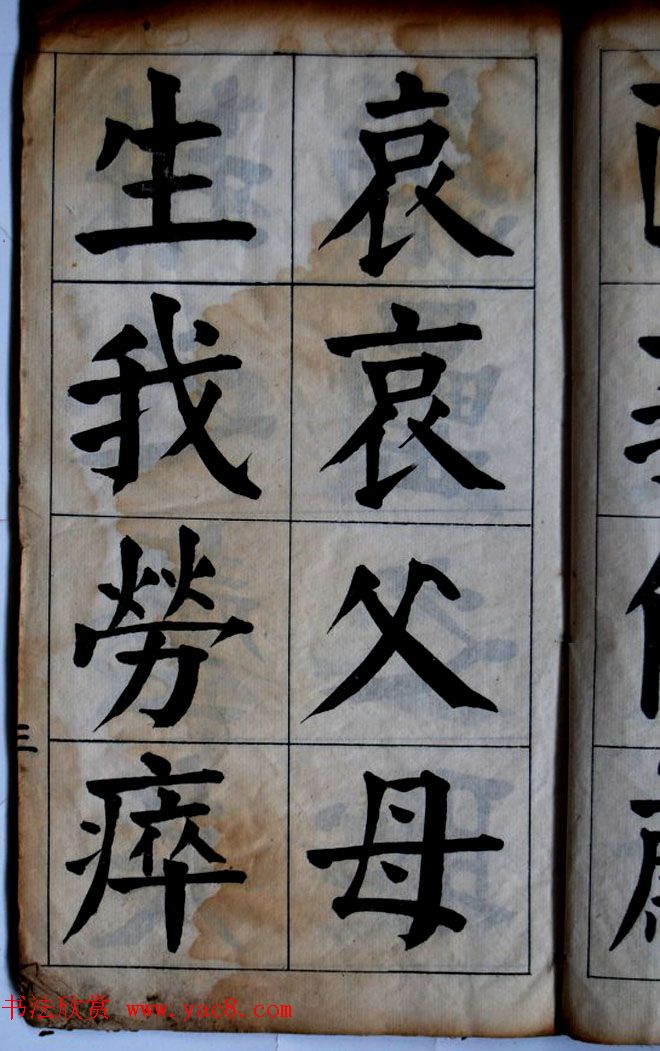 哀哀父母
生我勞瘁
三
书法欣赏 www.yac8.com